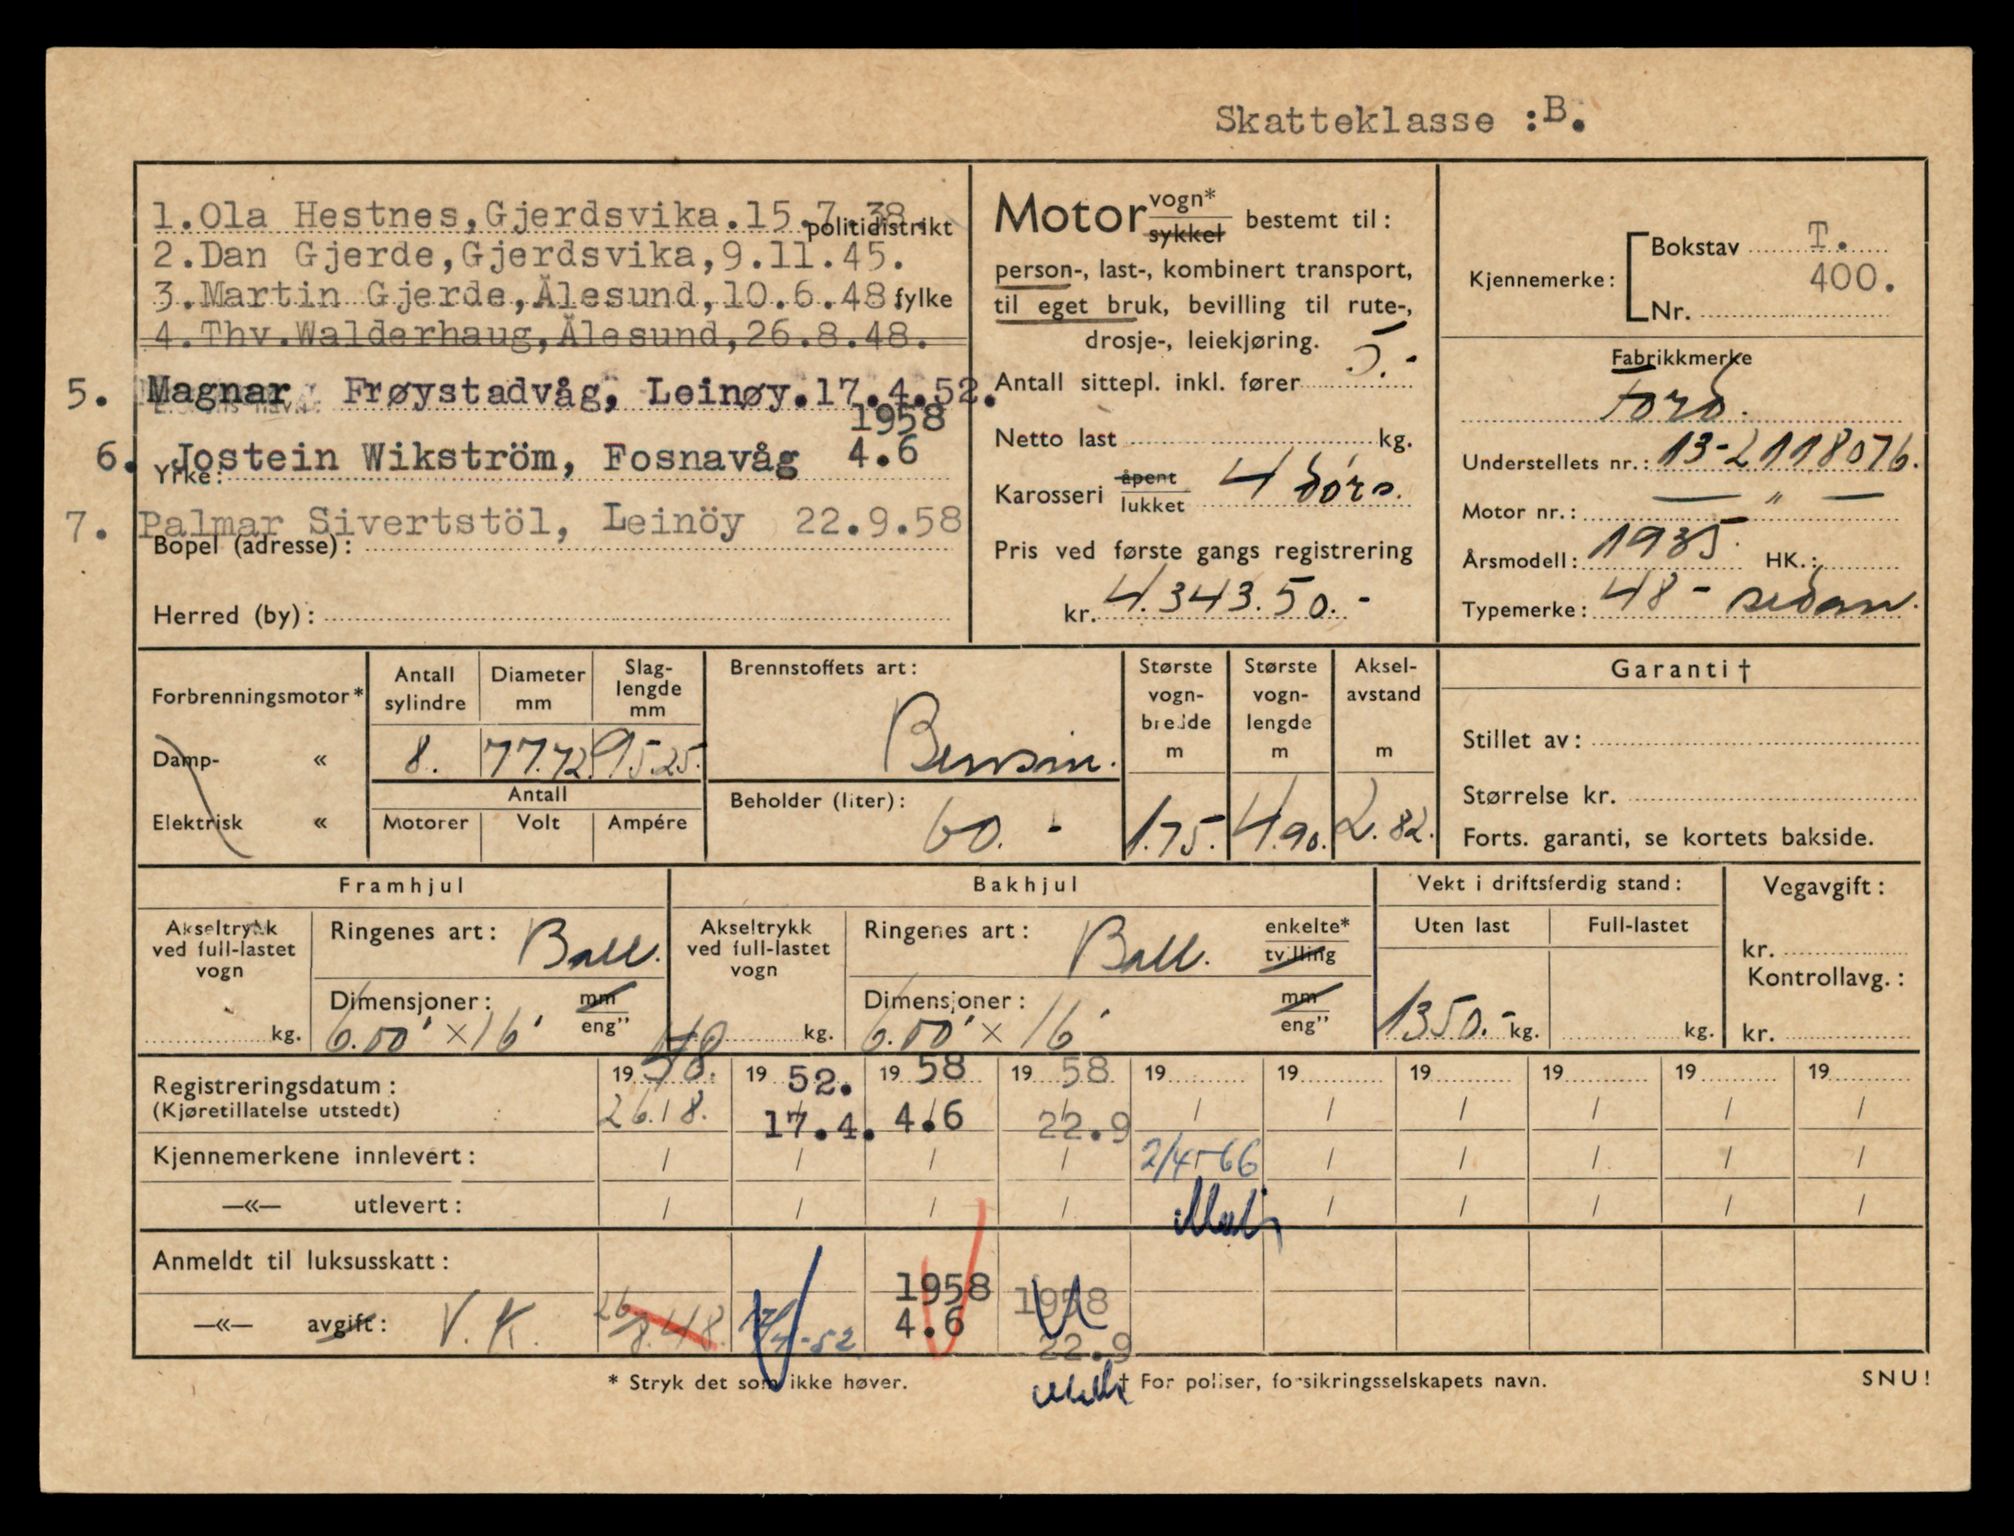 Skatteklasse :B.
1.Ola Hestnes,Gjerdsvika.15.7.38.
politidistrikt
2.Dan Gjerde,Gjerdsvika,9.11.45.
3.Martin Gjerde,Ålesund,10.6.48.
fylke
4.Thv.Walderhaug,Ålesund,26.8.48.
5. Magnar Frøystadvåg, Leinøy.17.4.52.
1958
6. Jostein Wikström, Fosnavåg 4.6
Yrke:
7. Palmar Sivertstöl, Leinöy 22.9.58
Bopel (adresse):
Herred (by):
Motor vogn* sykkel bestemt til:
person-, last-, kombinert transport,
til eget bruk, bevilling til rute-,
drosje-, leiekjøring.
Antall sittepl. inkl. fører 5.-
Netto last kg.
Karosseri åpent lukket 4 dørs.
Pris ved første gangs registrering
kr. 4.343.50.-
Kjennemerke: Bokstav T.
Nr. 400.
Fabrikkmerke
Ford.
Understellets nr.: 13-2118076.
Motor nr.: — " —
Årsmodell: 1935. HK.:
Typemerke: 48 - sedan.
Forbrenningsmotor*
Damp- «
Elektrisk «
Antall sylindre
Diameter mm
Slag-lengde mm
8. 77.72 95.25.
Antall
Motorer Volt Ampére
Brennstoffets art:
Bensin.
Beholder (liter):
60.-
Største vogn-bredde m
Største vogn-lengde m
Aksel-avstand m
1.75. 4.90. 2.82.
Garanti †
Stillet av:
Størrelse kr.
Forts. garanti, se kortets bakside.
Framhjul
Akseltrykk ved full-lastet vogn
kg.
Ringenes art: Ball.
Dimensjoner: mm eng”
6.00' × 16'
Bakhjul
Akseltrykk ved full-lastet vogn
kg.
Ringenes art: Ball. enkelte* tvilling
Dimensjoner: mm eng”
6.00' × 16'
Vekt i driftsferdig stand:
Uten last Full-lastet
1350.- kg. kg.
Vegavgift:
kr.
Kontrollavg.:
kr.
Registreringsdatum: 1948. 19 52. 19 58 19 58 19 19 19 19 19 19
(Kjøretillatelse utstedt) 26/8. 17.4. 4.6 22.9 / / / / / /
Kjennemerkene innlevert: / / / / 2/4-66 / / / / /
—«— utlevert: / / / / / / / / /
Anmeldt til luksusskatt:
—«— avgift: V.K. 26/8.48. 17/4-52 1958 4.6 1958 22.9
* Stryk det som ikke høver.
† For poliser, forsikringsselskapets navn.
SNU!